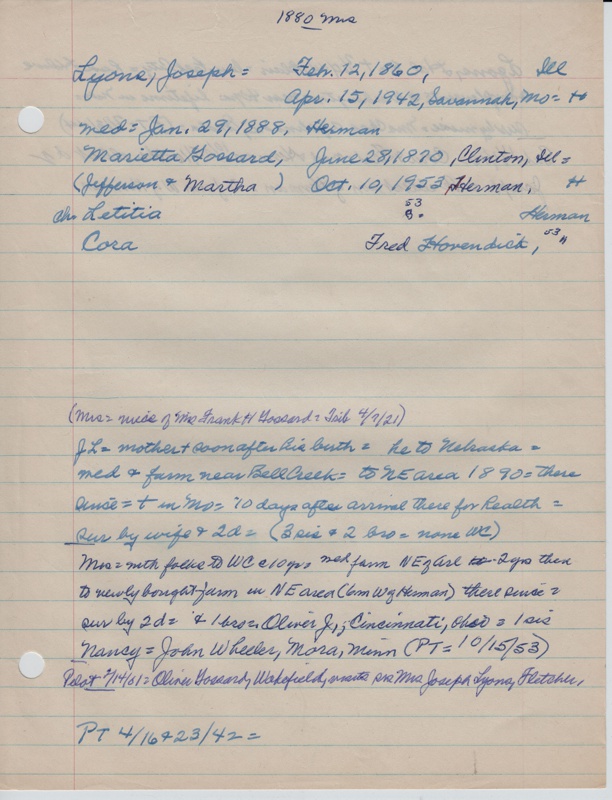 1880 Mrs
Lyons, Joseph = Feb. 12, 1860, Ill
Apr. 15, 1942, Savannah, Mo = H
med = Jan. 29, 1888, Herman
Marietta Gossard, June 28, 1870, Clinton, Ill =
(Jefferson & Martha ) Oct. 10, 1953, Herman, H
ch. Letitia 53 B. Herman
Cora Fred Hovendick, 53 H
(Mrs = niece of Mrs Frank H Gossard = Trib 4/7/21)
JL = mother + soon after his birth = he to Nebraska =
med & farm near Bell Creek = to NE area 1890 = there
since = + in Mo = 10 days after arrival there for health =
sur by wife & 2d = (3 sis & 2 bro = none WC)
Mrs = with folks to WC c 10 yrs med farm NE of Arl 2 yrs then
to newly bought farm in NE area (6m W of Herman) there since =
sur by 2d = & 1 bro = Oliver J., Cincinnati, Ohio = 1 sis
Nancy = John Wheeler, Mora, Minn (PT = 10/15/53)
Pilot 2/14/01 = Oliver Gossard, Wakefield, visits sis Mrs Joseph Lyons, Fletcher.
PT 4/16 & 23/42 =